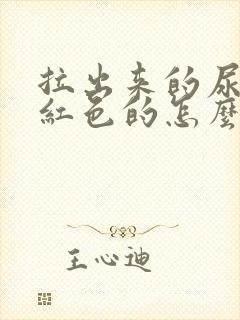 拉出来的尿
紅色的怎麼
王心迪